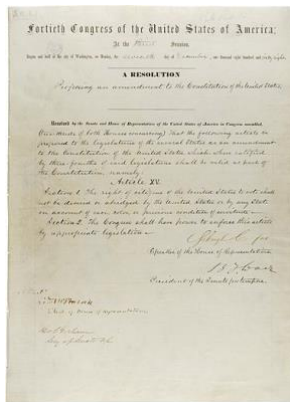 Fortieth Congress of the United States of America;
At the Third Session,
Begun and held at the city of Washington, on Monday, the seventh day of December, one thousand eight hundred and sixty-eight.
A RESOLUTION
Proposing an amendment to the Constitution of the United States.
Resolved by the Senate and House of Representatives of the United States of America in Congress assembled,
(two-thirds of both Houses concurring) That the following article be
proposed to the legislatures of the several States as an amendment
to the Constitution of the United States, which, when ratified
by three-fourths of said legislatures shall be valid as part of
the Constitution, namely:
Article XV.
Section 1. The right of citizens of the United States to vote shall
not be denied or abridged by the United States or by any State
on account of race, color, or previous condition of servitude—
Section 2. The Congress shall have power to enforce this article
by appropriate legislation—
Speaker of the House of Representatives.
President of the Senate pro tempore.
Clerk of House of Representatives